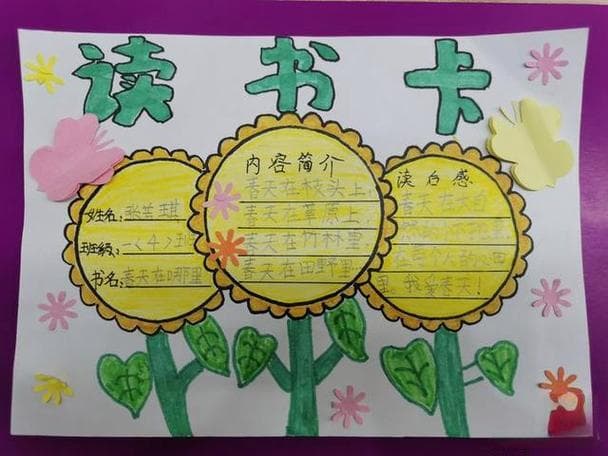 读书卡
姓名：张芷琪
班级：一〈4〉班
书名：春天在哪里
内容简介
春天在枝头上，
春天在草原上，
春天在竹林里
春天在田野里
读后感
春天在
里，我爱春天！